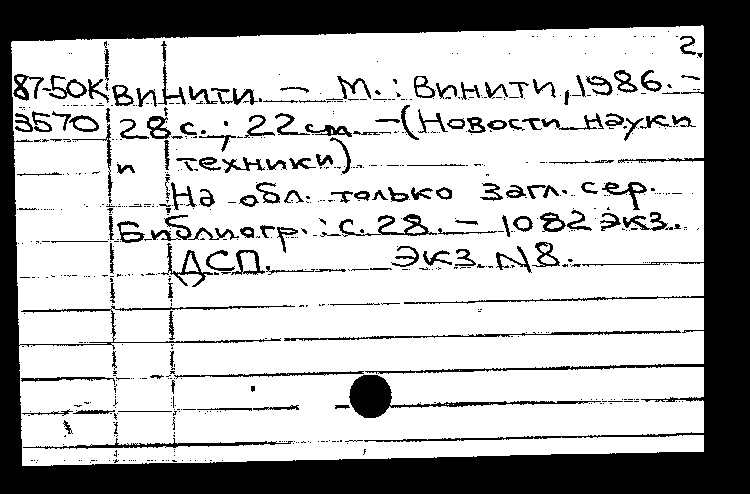 2.
87-50К ВИНИТИ. – М.: ВИНИТИ, 1986. –
3570 28 с.; 22 см. – (Новости науки
и техники)
На обл. только загл. сер.
Библиогр.: с. 28. – 1082 экз.
ДСП. Экз. N8.